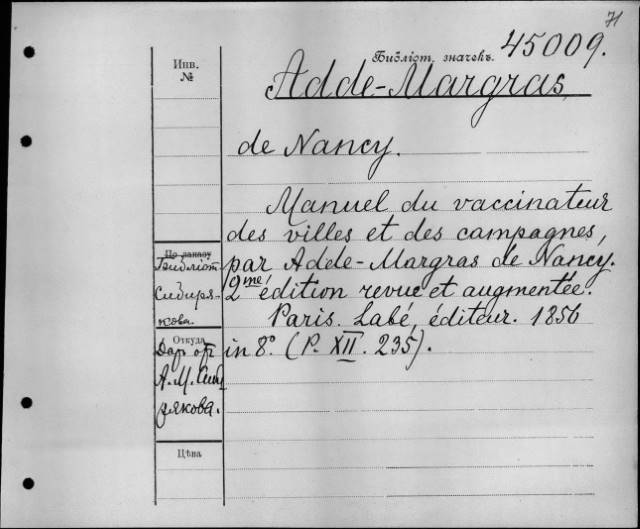 71
Библіот. значекъ. 45009.
Инв.
№
Adde-Margras
de Nancy.
Manuel du vaccinateur
des villes et des campagnes,
par Adde-Margras de Nancy.
2me édition revue et augmentée.
Paris. Labé, éditeur. 1856
in 8°. (P. XII. 235).
По заказу
Библіот.
Сибиря-
кова.
Откуда
Даръ от
А. М. Сиби
рякова.
Цѣна